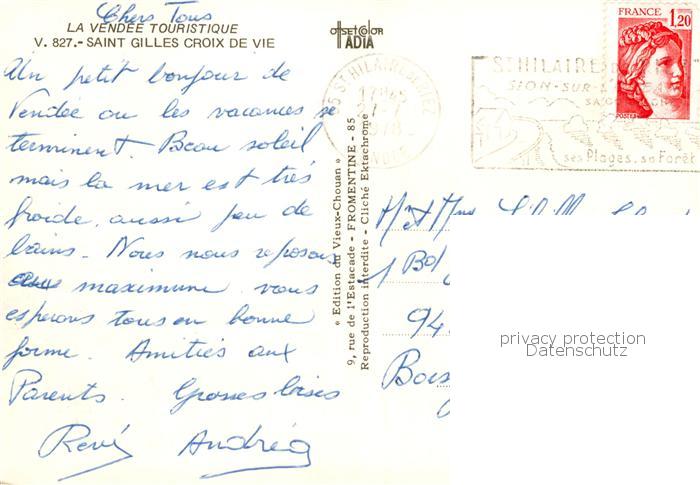 Chers Tous
LA VENDÉE TOURISTIQUE
V. 827.- SAINT GILLES CROIX DE VIE
offset color
IADIA
Un petit bonjour de
Vendée ou les vacances se
terminent. Beau soleil
mais la mer est très
froide, aussi peu de
bains. Nous nous reposons
au maximum. vous
esperons tous en bonne
forme. Amitiés aux
Parents. Grosses bises
René Andréa
« Edition du Vieux-Chouan »
9, rue de l'Estacade - FROMENTINE - 85
Reproduction interdite - Cliché Ektachrome
85 ST HILAIRE DE RIEZ
1978
ST HILAIRE
SION-SUR-L'
ses Plages, sa Forêt
FRANCE
1,20
POSTES
Mr et Mme
1 Bd
94
Bois
privacy protection
Datenschutz